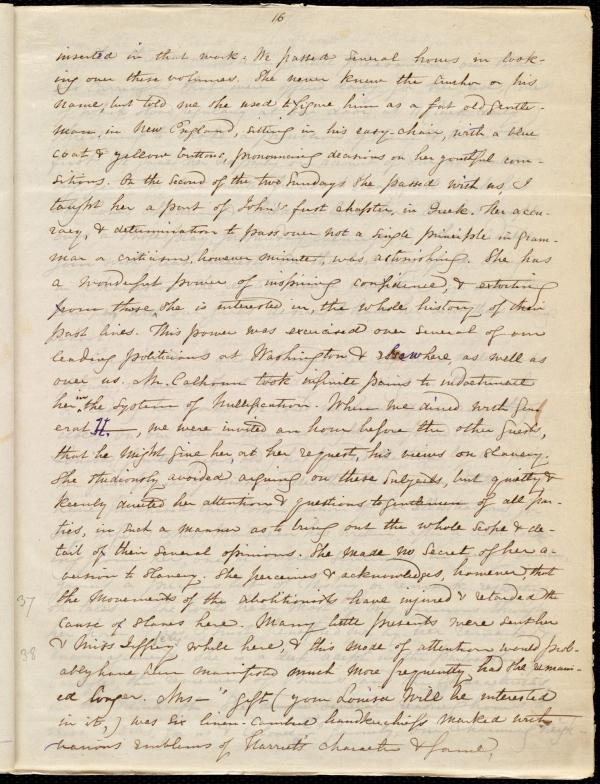 16
inserted in that work. We passed several hours in look-
ing over these volumes. She never knew the Author or his
name, but told me she used to figure him as a fat old gentle-
man, in New England, sitting in his easy-chair, with a blue
coat & yellow buttons, pronouncing decisions on her youthful com-
sitions. On the second of the two Sundays she passed with us, I
taught her a part of John's first chapter, in Greek. Her accu-
racy, & determination to pass over not a single principle in Gram-
mar or criticism, however minute, was astonishing. She has
a wonderful power of inspiring confidence, & extorting
from those she is interested in, the whole history of their
past lives. This power was exercised over several of our
leading politicians at Washington & elsewhere as well as
over us. Mr. Calhoun took infinite pains to indoctrinate
her in the system of Nullification. When we dined with Gen-
eral H., we were invited an hour before the other guests,
that he might give her, at her request, his views on Slavery.
She studiously avoided arguing on these subjects, but quietly &
keenly directed her attention & questions to gentlemen of all par-
ties, in such a manner as to bring out the whole scope & de-
tail of their several opinions. She made no secret of her a-
version to Slavery. She perceives & acknowledges, however, that
37 the movements of the abolitionists have injured & retarded the
cause of slaves here. Many little presents were sent her
38 & Miss Jeffrey while here, & this mode of attention would prob-
ably have been manifested much more frequently, had she remain-
ed longer. Mrs —'s gift (your Louisa will be interested
in it,) was six linen-cambric handkerchiefs marked with
various emblems of Harriet's character & fame,